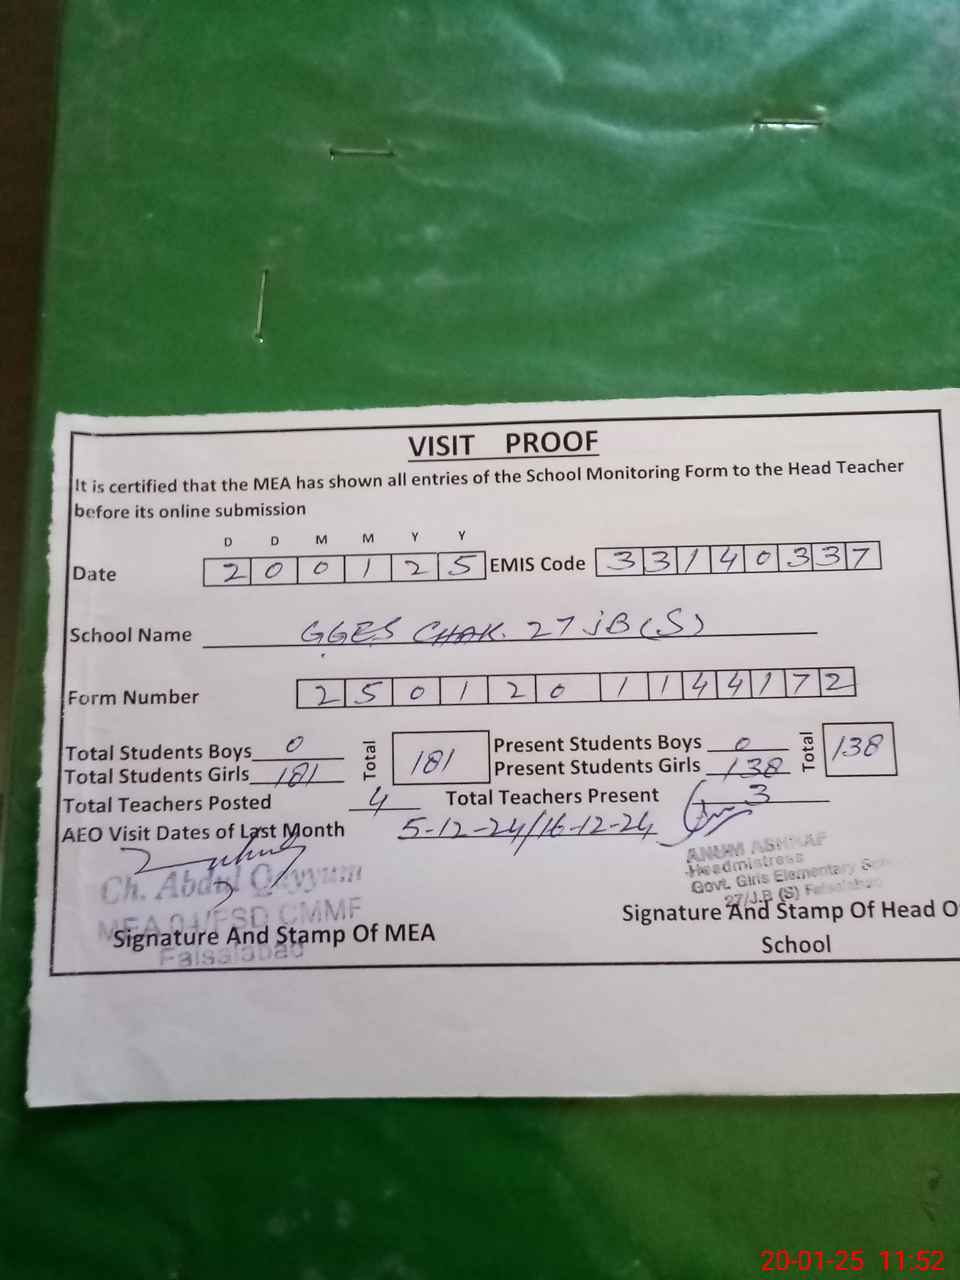 VISIT PROOF
It is certified that the MEA has shown all entries of the School Monitoring Form to the Head Teacher
before its online submission
D D M M Y Y
Date 2 0 0 1 2 5 EMIS Code 3 3 1 4 0 3 3 7
School Name GGES CHAK. 27 JB (S)
Form Number 2 5 0 1 2 0 1 1 4 4 1 7 2
Total Students Boys 0 Total 181 Present Students Boys 0 Total 138
Total Students Girls 181 Present Students Girls 138
Total Teachers Posted 4 Total Teachers Present 3
AEO Visit Dates of Last Month 5-12-24/16-12-24
Ch. Abdul Qayyum
MEA 04/FSD CMMF
Faisalabad
Signature And Stamp Of MEA
ANUM ASHRAF
Headmistress
Govt. Girls Elementary
27/J.B (S) Faisalabad
Signature And Stamp Of Head O
School
20-01-25 11:52